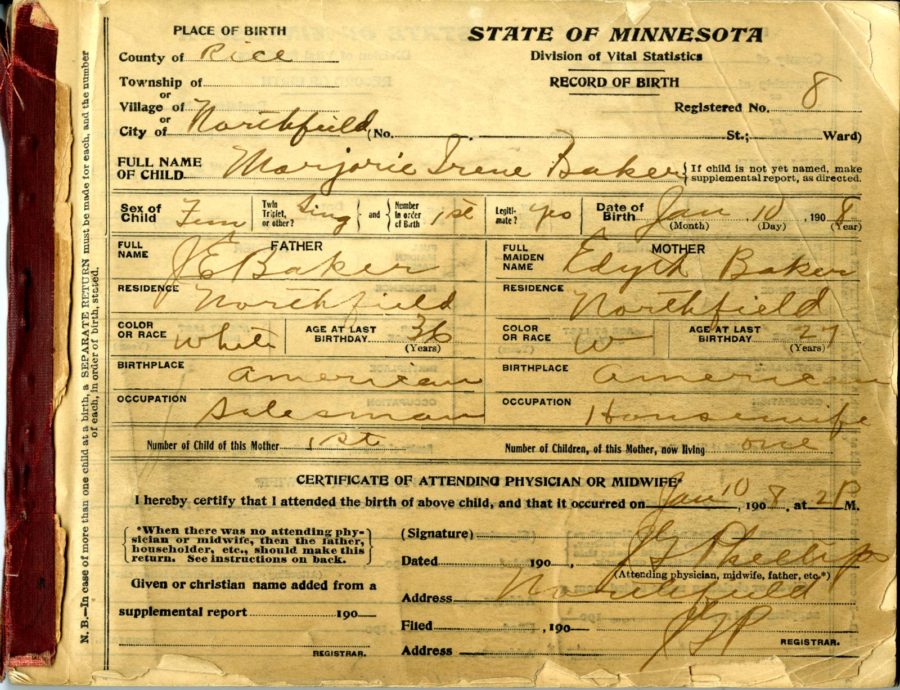 PLACE OF BIRTH
STATE OF MINNESOTA
County of Rice
Division of Vital Statistics
Township of
RECORD OF BIRTH
or
Village of
Registered No. 8
or
City of Northfield (No. St.; Ward)
FULL NAME
OF CHILD Marjorie Irene Baker
If child is not yet named, make
supplemental report, as directed.
Sex of
Child Fem
Twin
Triplet,
or other? Sing
and
Number
in order
of Birth 1st
Legiti-
mate? yes
Date of
Birth Jan 10, 1908
(Month) (Day) (Year)
FULL
NAME
FATHER
J E Baker
FULL
MAIDEN
NAME
MOTHER
Edyth Baker
RESIDENCE Northfield
RESIDENCE Northfield
COLOR
OR RACE White
AGE AT LAST
BIRTHDAY 36
(Years)
COLOR
OR RACE W
AGE AT LAST
BIRTHDAY 27
(Years)
BIRTHPLACE American
BIRTHPLACE American
OCCUPATION Salesman
OCCUPATION Housewife
Number of Child of this Mother 1st
Number of Children, of this Mother, now living one
CERTIFICATE OF ATTENDING PHYSICIAN OR MIDWIFE*
I hereby certify that I attended the birth of above child, and that it occurred on Jan 10, 1908, at 2 P M.
*When there was no attending phy-
sician or midwife, then the father,
householder, etc., should make this
return. See instructions on back.
(Signature) Phillips
Dated 190 ,
(Attending physician, midwife, father, etc.*)
Given or christian name added from a
Address Northfield
supplemental report 190
Filed , 190
REGISTRAR.
Address
REGISTRAR.
N. B.—In case of more than one child at a birth, a SEPARATE RETURN must be made for each, and the number
of each, in order of birth, stated.